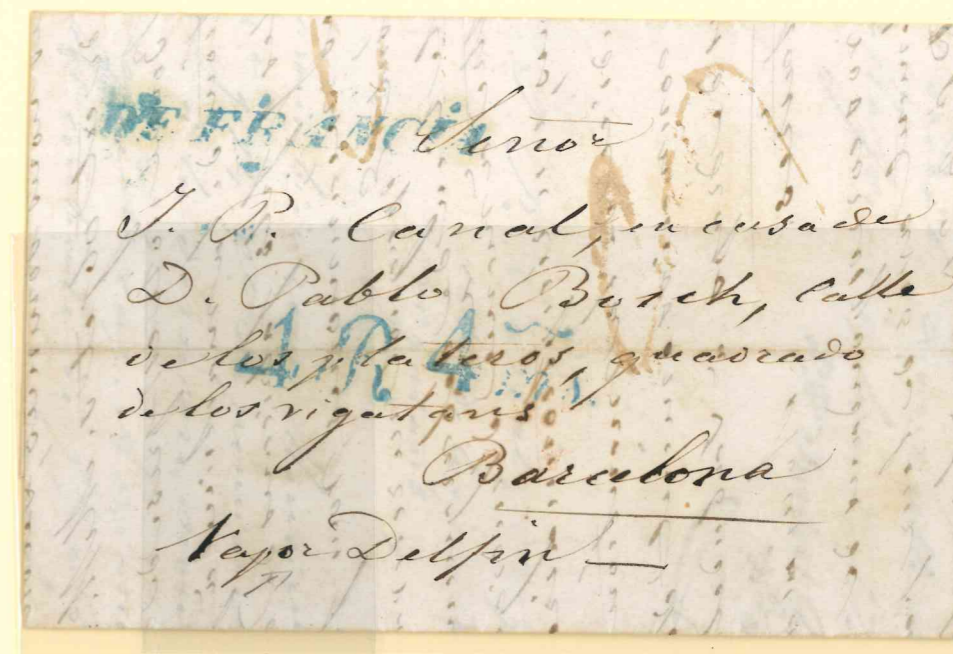 DE FRANCIA
Señor
J. P. Canal, en casa de
D. Pablo Bosch, Calle
de los plateros, quadrado
de los vigatans
4 R 4
Barcelona
Vapor Delfin